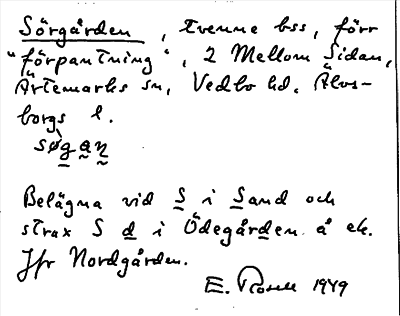 Sörgården, tvenne bss, förr
"förpantning", 2 Mellom Sidan,
Ärtemarks sn, Vedbo hd, Älvs-
borgs l.
søgan
Belägna vid S i Sand och
strax S d i Ödegården å ek.
Jfr Nordgården.
E. Rosell 1949